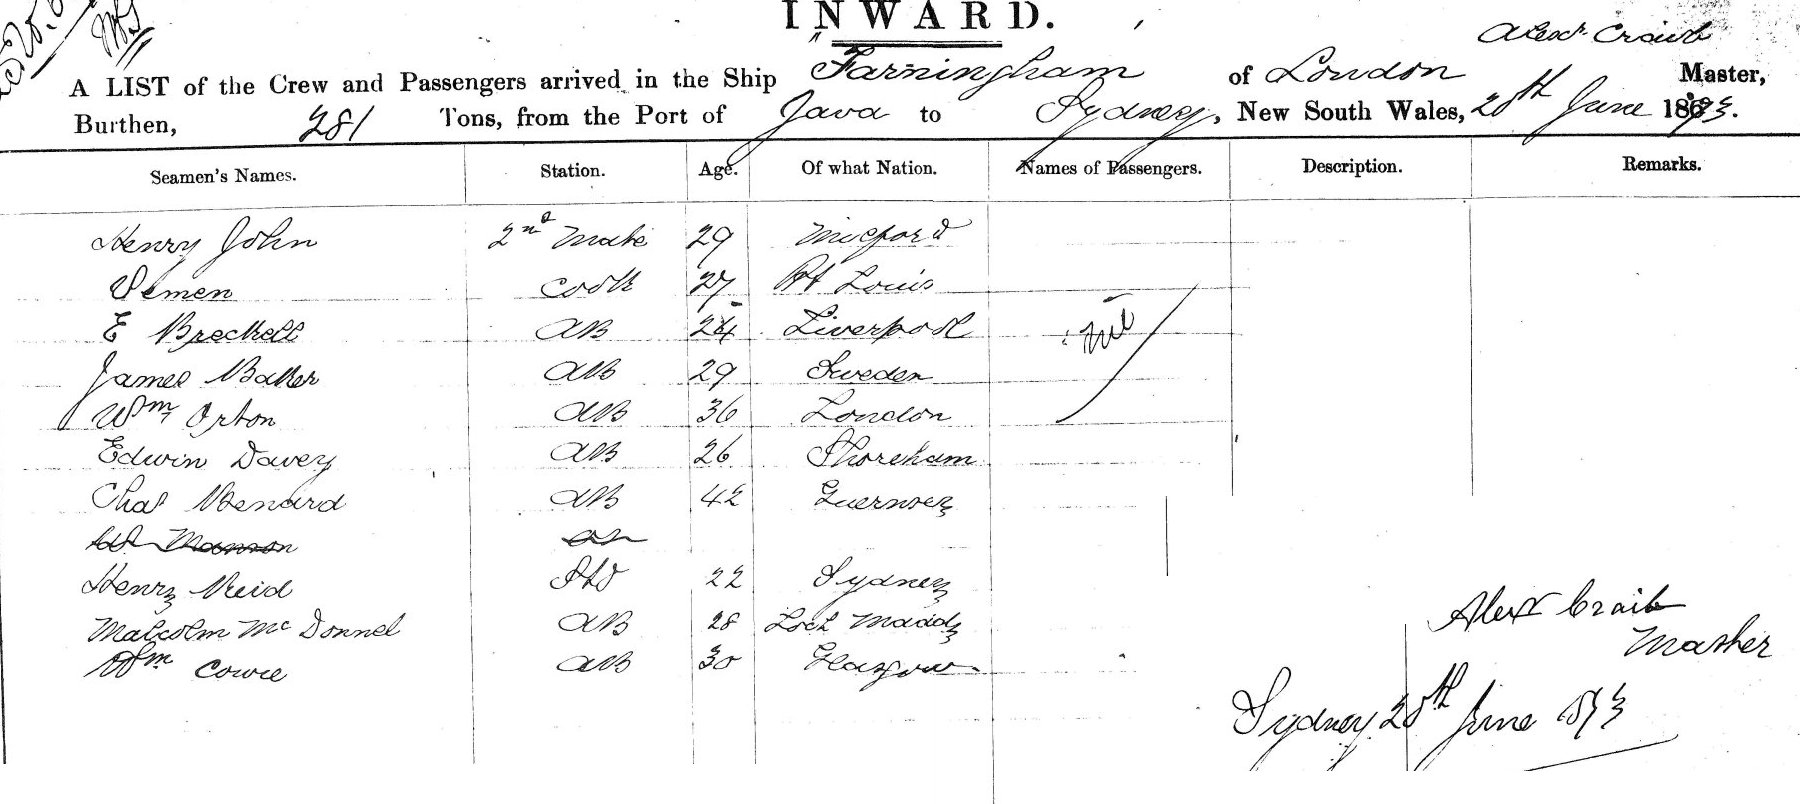 INWARD.
Alexr Craib
A LIST of the Crew and Passengers arrived in the Ship Farningham of London Master,
Burthen, 281 Tons, from the Port of Java to Sydney, New South Wales, 20th June 1873.
Seamen's Names. Station. Age. Of what Nation. Names of Passengers. Description. Remarks.
Henry John 2nd Mate 29 Milford
cook 27 Pt Louis
E Breckell AB Liverpool Nil
James Baker AB 29 Sweden
Wm Orton AB 36 London
Edwin Davey AB 26 Shoreham
Chas Renard AB 42 Guernsey
Manson
Henry Reid Std 22 Sydney
Malcolm McDonnel AB 28 Loch Maddy
Wm Cowie AB 30 Glasgow
Alexr Craib
Master
Sydney 20th June 1873